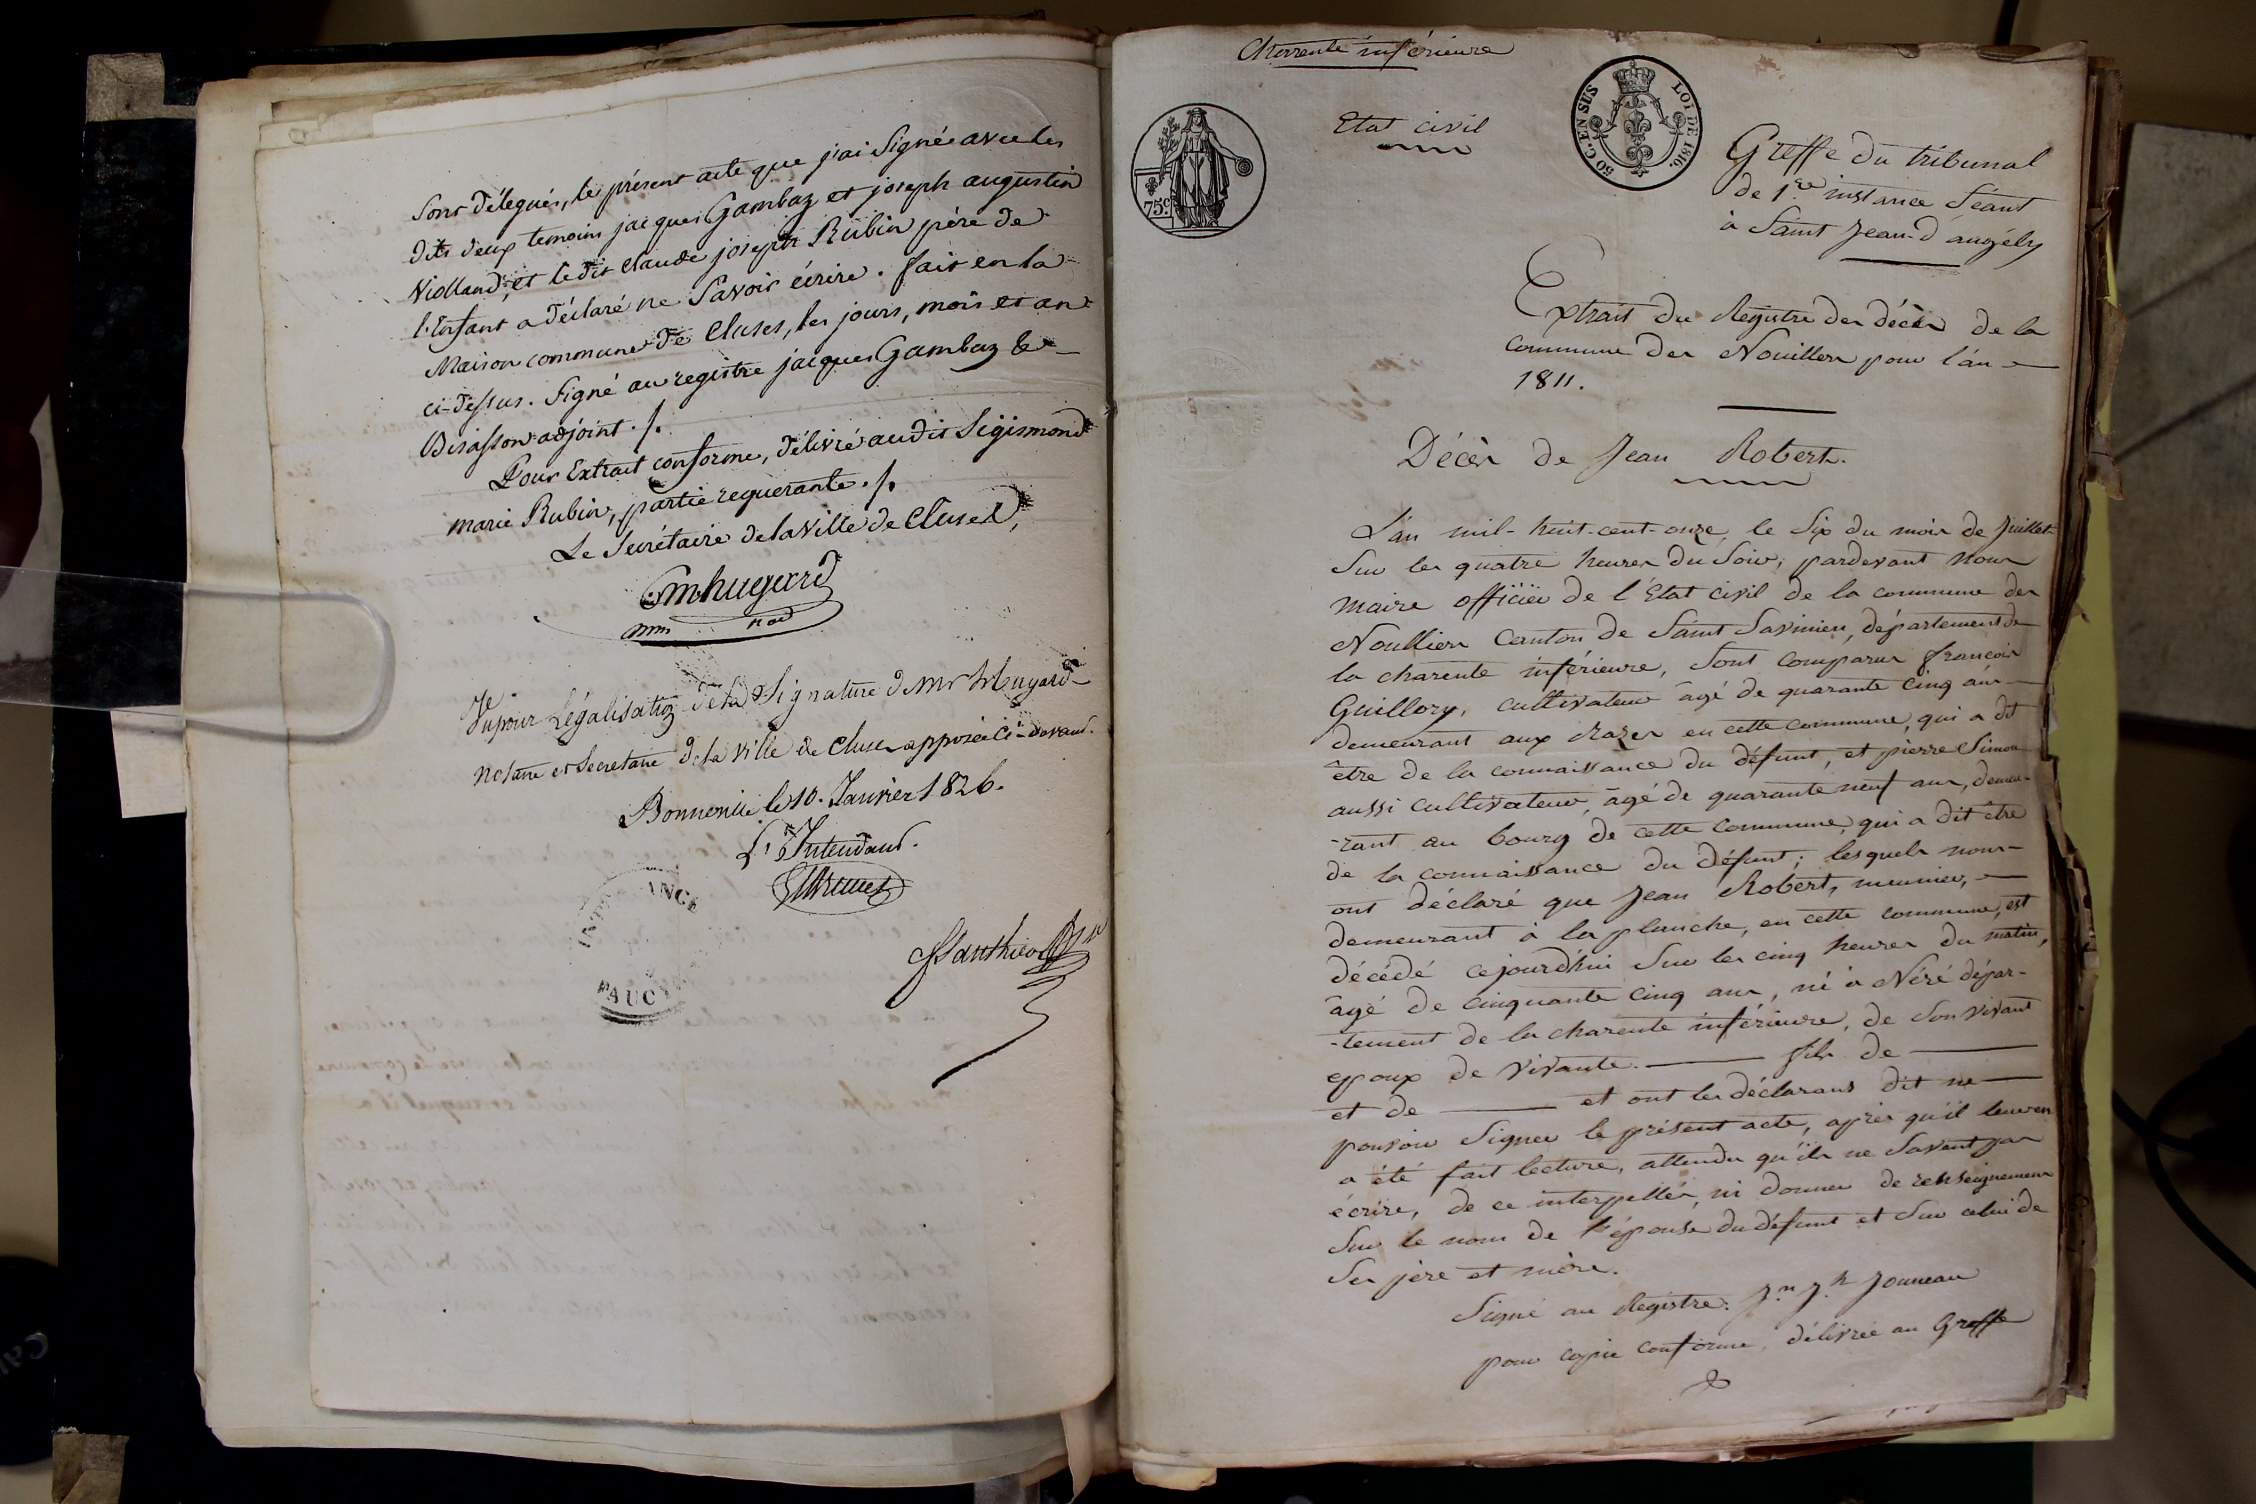 sont délégués, le présent acte que j'ai Signé avec les
dits deux temoins jacques Gambaz et joseph augustin
Violland, et le dit claude joseph Rubin père de
l'Enfant a déclaré ne Savoir écrire. fait en la
Maison commune de Cluses, les jours, mois et an
ci-dessus. Signé au registre jacques Gambaz &
adjoint ./.
Pour Extrait conforme, délivré audit Sigismond
marie Rubin, partie requerante ./.
Le Secrétaire de la Ville de Cluses,
Vu pour Légalisation de la Signature de Mr hugard
notaire et Secretaire de la Ville de Cluses apposée ci-devant.
Bonneville le 10. Janvier 1826.
L'Intendant.
INTENDANCE
FAUC
Charente inférieure
Etat civil
75 c.
50 C. EN SUS
LOI DE 1816.
Greffe du tribunal
de 1ere instance Séant
à Saint Jean-d'angély
Extrait du Registre des décès de la
commune des Nouillers pour l'an
1811.
Décès de Jean Robert.
L'an mil-huit-cent-onze, le Six du mois de Juillet
Sur les quatre heures du Soir, pardevant nous
Maire officier de l'Etat civil de la commune des
Noulliers Canton de Saint Savinien, département de
la charente inférieure, Sont comparus françois
Guillory, cultivateur âgé de quarante cinq ans
demeurant aux en cette commune, qui a dit
être de la connaissance du défunt, et pierre Simon
aussi cultivateur, âgé de quarante neuf ans, demeu-
-rant au bourg de cette commune, qui a dit être
de la connaissance du défunt; lesquels nous
ont déclaré que Jean Robert, meunier,
demeurant à la planche, en cette commune, est
décédé cejourd'hui Sur les cinq heures du matin,
âgé de cinquante cinq ans, né à Néré dépar-
-tement de la charente inférieure, de Son vivant
epoux de vivante. fils de
et de et ont les déclarans dit ne
pouvoir Signer le présent acte, après qu'il leur en
a été fait lecture, attendu qu'ils ne Savent pas
écrire, de ce interpellés, ni donner de renseignemens
Sur le nom de l'épouse du défunt et Sur celui de
Ses père et mère.
Signé au Registre. Jn Jh Jouneau
pour copie conforme, délivrée au Greffe